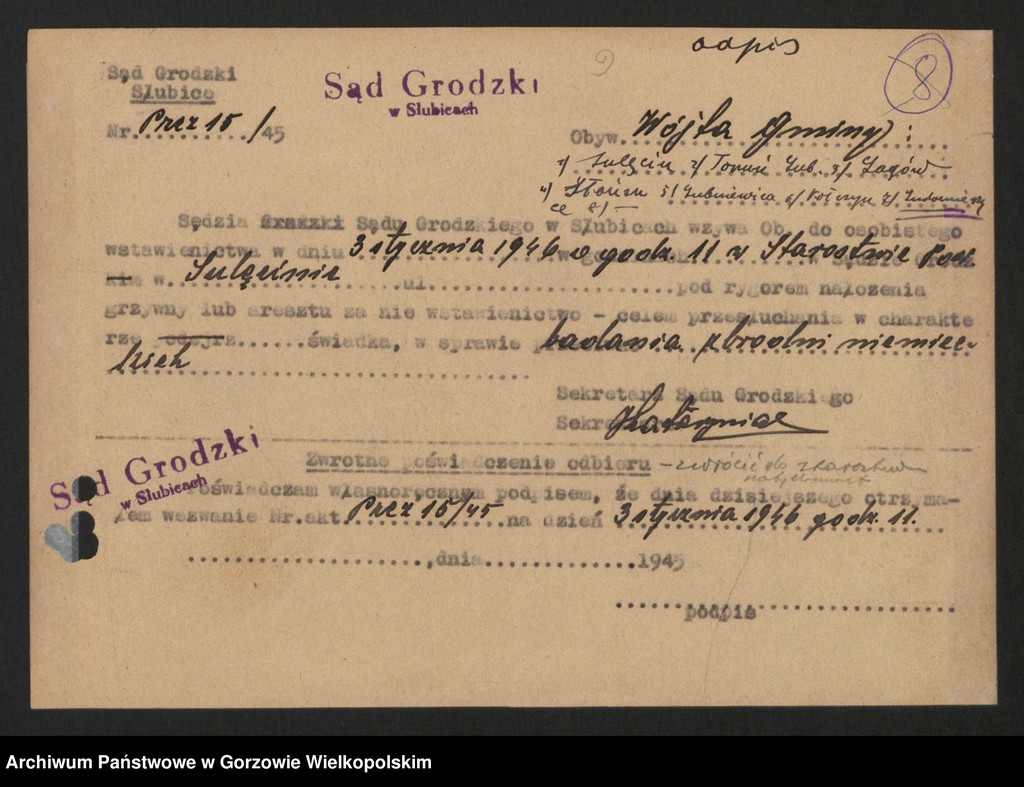 odpis
8
Sąd Grodzki
Słubice
Nr. Prez 15/45
Sąd Grodzki
w Słubicach
Obyw. Wójta Gminy:
1) Sulęcin 2) Toruń Lub. 3) Łagów
4) 5) Lubniewice 6) Kołczyn 7)
ce 8) —
Sędzia Sądu Grodzkiego w Słubicach wzywa Ob. do osobistego
wstawienictwa w dniu 3 stycznia 1946 o godz. 11 w Starostwie Pow.
w. Sulęcinie ul. pod rygorem nałożenia
grzywny lub aresztu za nie wstawienictwo - celem przesłuchania w charakte
rze świadka, w sprawie badania zbrodni niemiec-
kich
Sekretarz Sądu Grodzkiego
Sąd Grodzki
w Słubicach
Zwrotne poświadczenie odbioru - zwrócić do starostwa
natychmiast
Poświadczam własnoręcznym podpisem, że dnia dzisiejszego otrzyma-
łem wezwanie Nr. akt. Prez 15/45 na dzień 3 stycznia 1946 godz. 11.
, dnia 1945
podpis
Archiwum Państwowe w Gorzowie Wielkopolskim